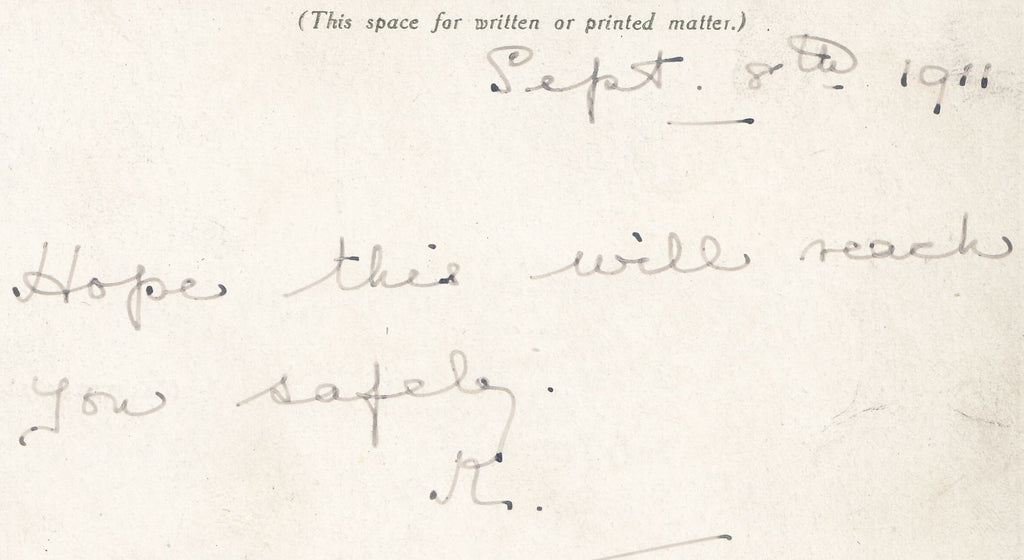 (This space for written or printed matter.)
Sept. 8th 1911
Hope this will reach
you safely.
K.